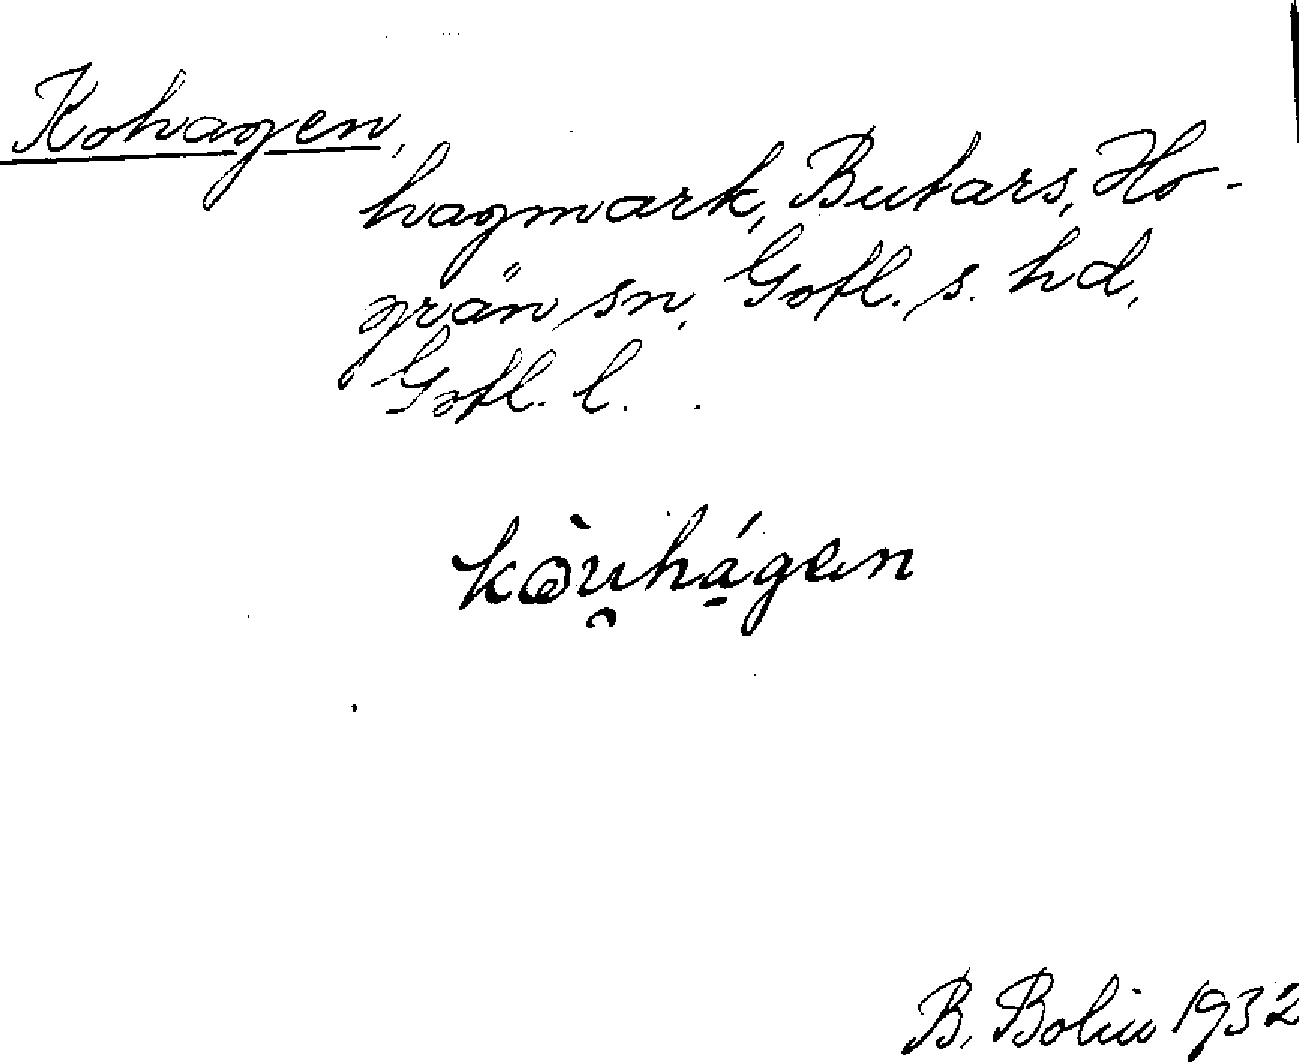 Kohagen,
hagmark, Butars, Ho-
grän sn, Gotl. s. hd,
Gotl. l.
kòu̯hága̱n
B. Bolin 1932